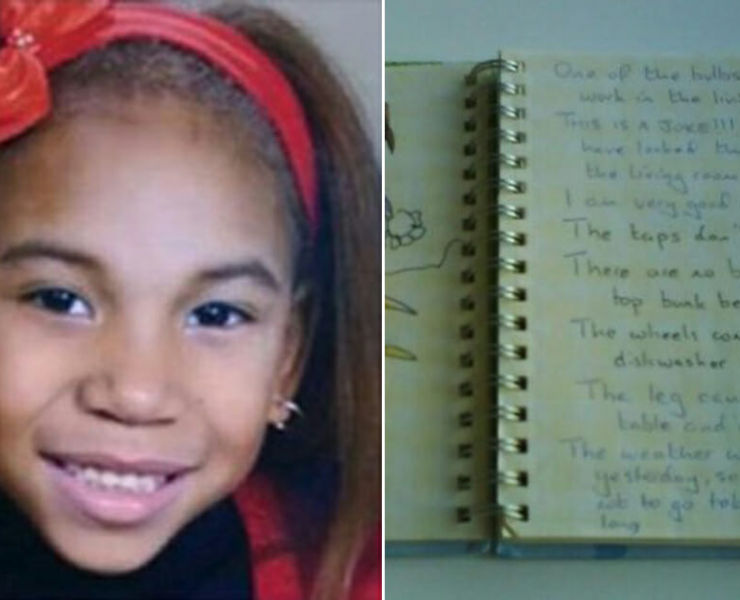 One of the bulbs
work in the
THIS IS A JOKE!!!
have locked
the living room
I am very good
The taps don'
There are no b
top bunk be
The wheels
dishwasher
The leg
table and
The weather w
yesterday, so
not to go
long